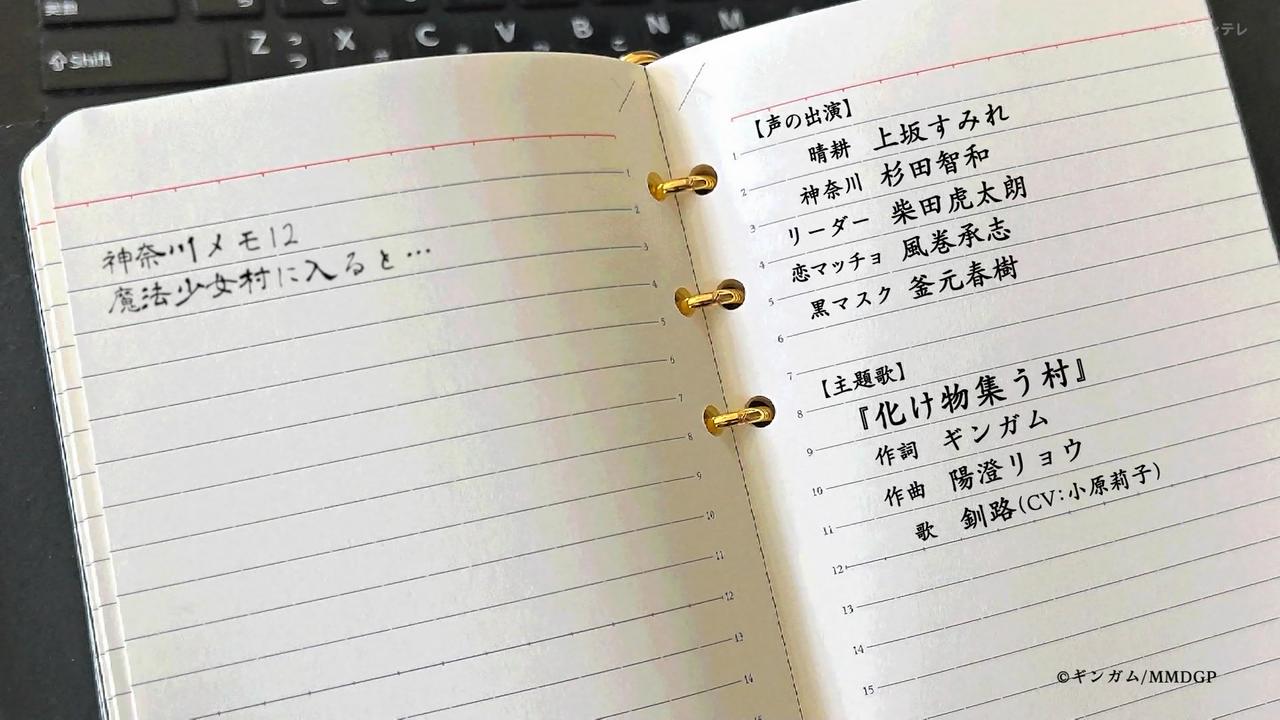 英数
Shift
Z っ
つ
X
C
V
B こ
N
M
カンテレ
神奈川メモ12
魔法少女村に入ると…
1
2
3
4
5
6
7
8
9
10
11
12
13
14
【声の出演】
晴耕 上坂すみれ
神奈川 杉田智和
リーダー 柴田虎太朗
恋マッチョ 風巻承志
黒マスク 釜元春樹
【主題歌】
『化け物集う村』
作詞 ギンガム
作曲 陽澄リョウ
歌 釧路(CV:小原莉子)
1
2
3
4
5
6
7
8
9
10
11
12
13
14
15
©ギンガム/MMDGP